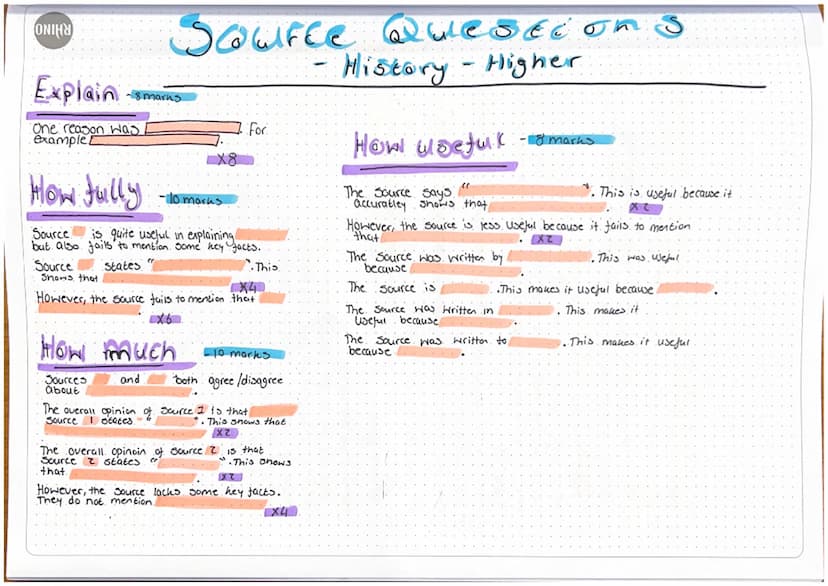 RHINO
Source Questions
- History - Higher
Explain - 8 marks
One reason was . For
example .
x8
How fully - 10 marks
Source is quite useful in explaining
but also fails to mention some key facts.
Source states " ". This
shows that
x4
However, the source fails to mention that
x6
How much - 10 marks
Sources and both agree/disagree
about .
The overall opinion of source 1 is that
Source 1 states " ". This shows that
x2
The overall opinoin of source 2 is that
Source 2 states " ". This shows
that .
x2
However, the source lacks some key facts.
They do not mention
x4
How useful - 8 marks
The source says " ". This is useful because it
accuratley shows that . x2
However, the source is less useful because it fails to mention
that . x2
The source was written by . This was useful
because .
The source is . This makes it useful because .
The source was written in . This makes it
useful because .
The source was written to . This makes it useful
because .